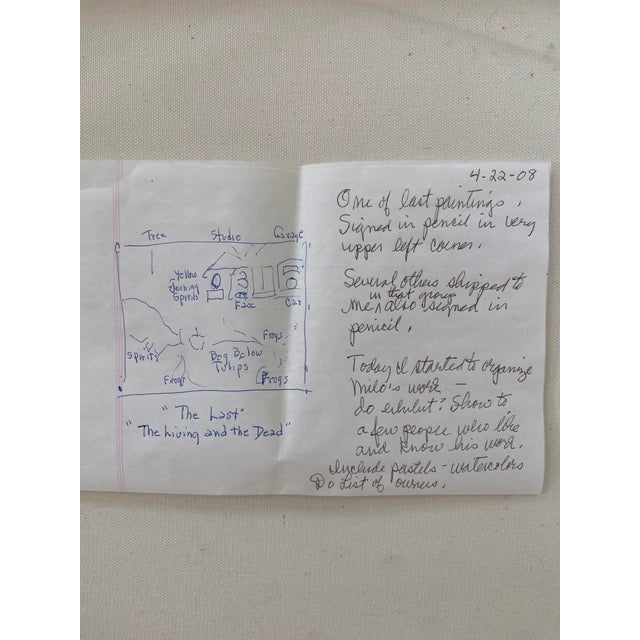 Tree Studio Garage
Yellow
Spirits
Face Car
Spirits
Frogs
Dog Below
Tulips
Frogs
Frogs
"The Last"
"The Living and the Dead"
4-22-08
One of last paintings.
Signed in pencil in very
upper left corner.
Several others shipped to
in that group
me ^ also signed in
penicil.
Today I started to organize
Milo's work —
do exhibit? Show to
a few people who like
and know his work.
Include pastels - watercolors
Do List of owners.